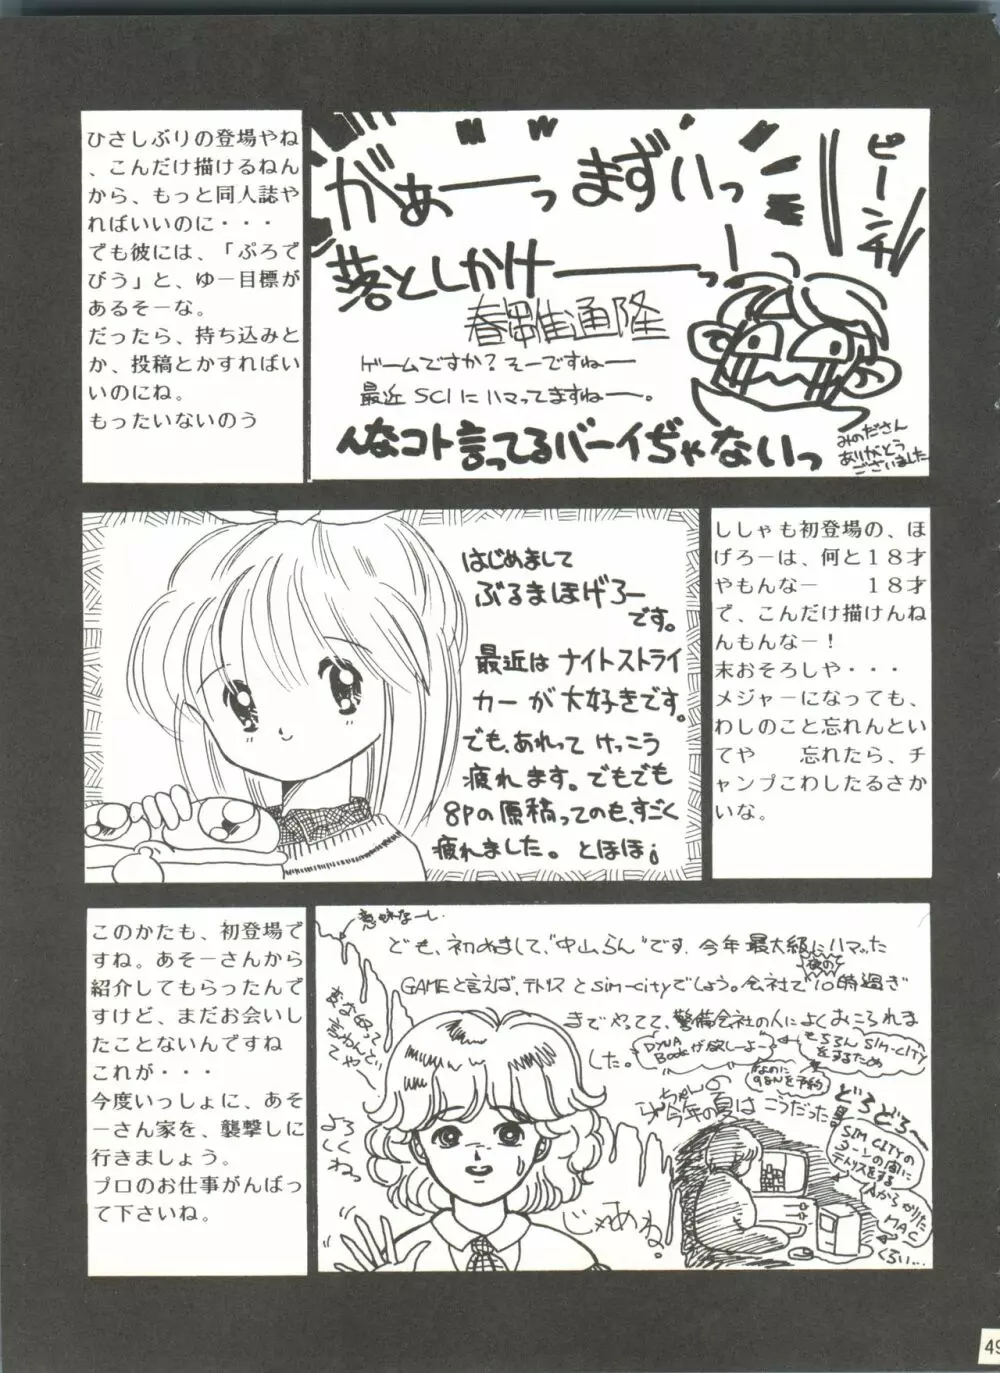 ひさしぶりの登場やね
、こんだけ描けるねん
から、もっと同人誌や
ればいいのに・・・
でも彼には、「ぷろで
びう」と、ゆー目標が
あるそーな。
だったら、持ち込みと
か、投稿とかすればい
いのにね。
もったいないのう
がぁーっ まずいっ
ピーンチ
落としかけーーっ!
春日雅通隆
ゲームですか?そーですねー
最近 SCI にハマってますねー。
んなコト言ってるバーイぢゃないっ
みのださん
ありがとう
ございました
はじめまして
ぶるまほげろー
です。
最近は ナイトストライ
カー が 大好きです。
でも、あれって けっこう
疲れます。でもでも
8Pの原稿ってのも、すごく
疲れました。とほほ¡
ししゃも初登場の、ほ
げろーは、何と18才
やもんなー 18才
で、こんだけ描けんね
んもんなー!
末おそろしや・・・
メジャーになっても、
わしのこと忘れんとい
てや 忘れたら、チ
ャンプこわしたるさか
いな。
このかたも、初登場で
すね。あそーさんから
紹介してもらったんで
すけど、まだお会いし
たことないんですね
これが・・・
今度いっしょに、あそ
ーさん家を、襲撃しに
行きましょう。
プロのお仕事がんばっ
て下さいね。
意味なーし.
ども、初めまして、"中山らん"です. 今年 最大級にハマった
GAMEと言えば、テトリスとsim-cityでしょう。会社で夜の10時過ぎ
までやってて、警備会社の人によくおこられま
した。
DYNA
Bookが欲しいよー
もちろん SIM-CITY
をするため
なのに
98Nを予約
変な奴って
言わんでい
てや
らんちゃんの
今年の夏は こうだった!
どろどろ〜
SIM CITYの
シーンの間に
テトリスをする
Aからかりた
MAC
くらい...
よろしくねっ
じゃあね。
49